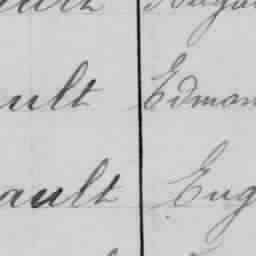 ault
ault Edmon
ault Eug